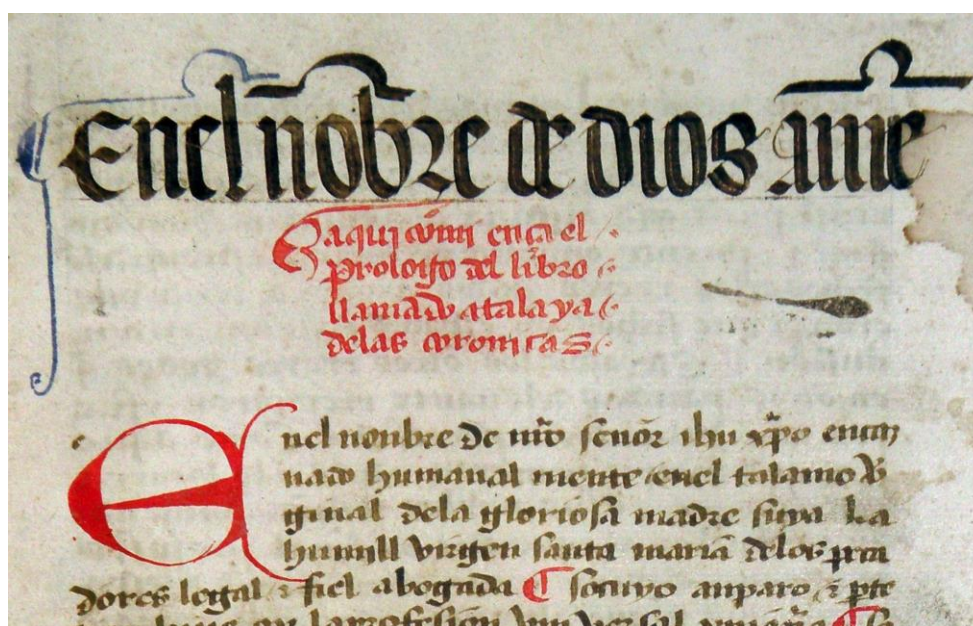 Enel nobre de dios ame
aqui comi ença el
prologo del libro
llamado atalaya
delas coronicas
Enel nonbre de nro senor ihu xpo encar
nado humanal mente enel talamo v
ginal dela gloriosa madre suya la
humill virgen santa maria delos peca
dores legal & fiel abogada ¶ so cuyo anparo & pte